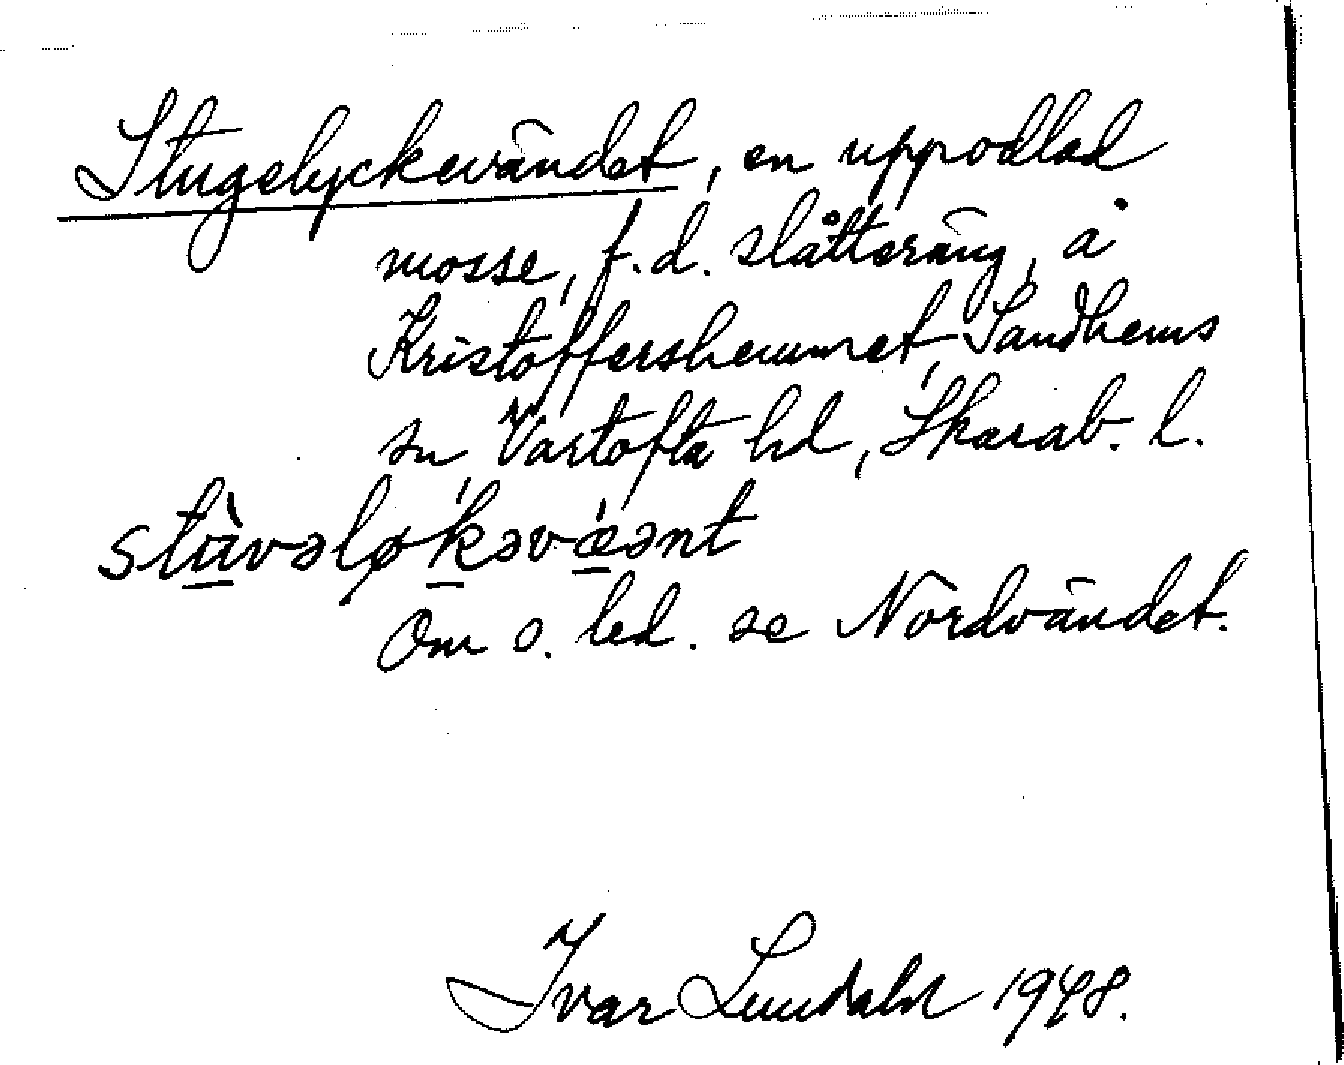 Stugelyckevändet, en uppodlad
mosse, f.d. slåtteräng, å
Kristoffershemmet, Sandhems
sn, Vartofta hd, Skarab. l.
stùvəløkəvæ̀ənt
Om s. led. se Nordvändet.
Ivar Lundahl 1948.